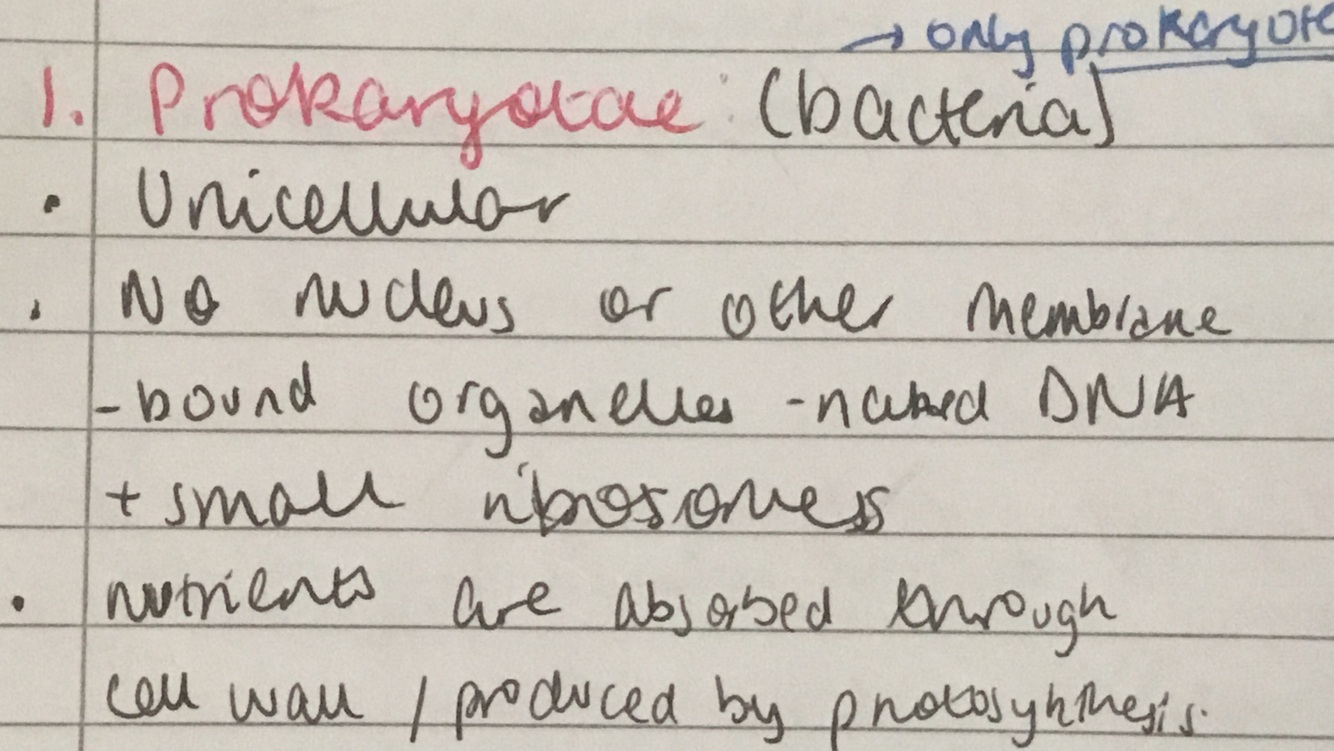 → only prokaryote
1. Prokaryotae (bacteria)
• Unicellular
• No nucleus or other membrane
-bound organelles - naked DNA
+ small ribosomes
• nutrients are absorbed through
cell wall / produced by photosynthesis.